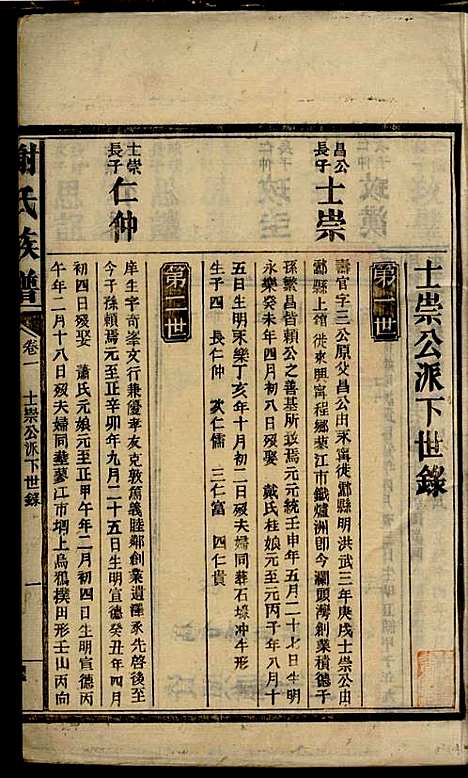 士崇公派下世錄
第一世
昌公長子 士崇
壽官字三公原父昌公出永甯徙酃縣明洪武三年庚戌士崇公出
酃縣上舘徙來興甯程鄉蓼江市鐵爐洲卽今瀾頭灣創業積德子
孫繁昌皆賴公之善基所致焉元元統壬申年五月二十七日生明
永樂癸未年四月初八日歿娶 戴氏桂娘元至元丙子年八月十
五日生明永樂丁亥年十月初二日歿夫婦同葬石壕冲牛形
生子四 長仁仲 次仁儒 三仁富 四仁貴
第二世
士崇長子 仁仲
庠生字奇峯文行兼優孝友克敦萬義睦鄰創業遺澤承先啓後至
今子孫賴焉元至正辛卯年九月二十五日生明宣德癸丑年四月
初四日歿娶 蕭氏元娘元至正甲午年二月初四日生明宣德丙
午年二月十八日歿夫婦同葬蓼江市塘上烏狐樸田形壬山丙向
謝氏族譜
卷一 士崇公派下世錄 一